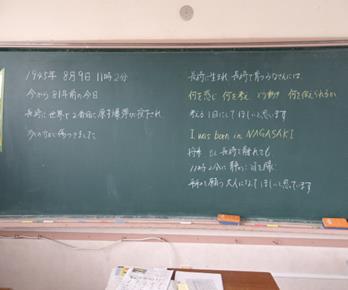 1945年 8月9日 11時2分
今から81年前の今日
長崎に世界で2番目に原子爆弾が投下され
多くの方が傷つきました
長崎に生まれ 長崎で育つみなさんには
何を感じ 何を考え どう動き 何を伝えられるか
考える1日にしてほしいと思います
I was born in NAGASAKI
将来 もし長崎を離れても
11時2分に静かに目を閉じ
平和を願う大人になってほしいと思っています